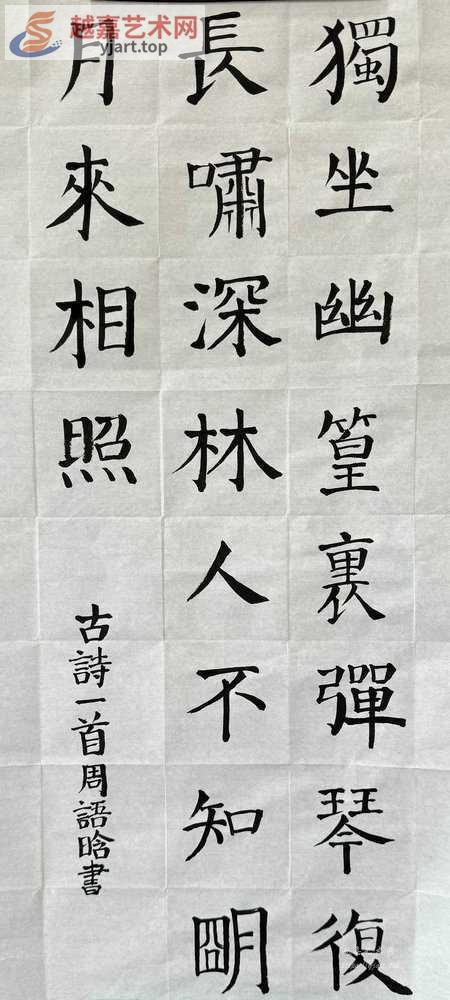 越嘉艺术网
yjart.top
獨坐幽篁裏彈琴復
長嘯深林人不知朙
月來相照
古詩一首周語晗書